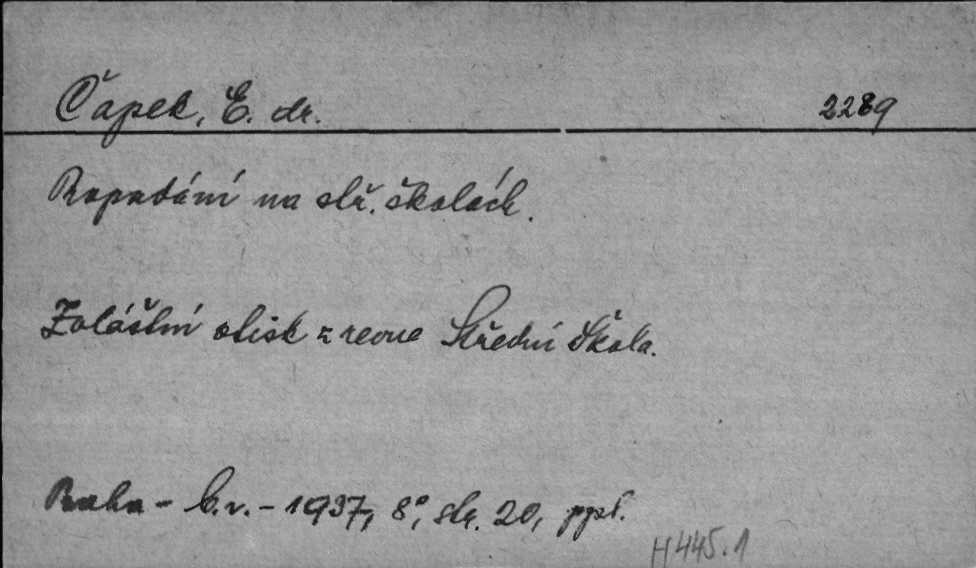 Čapek, E. dr. 2289
Propadání na stř. školách.
Zvláštní otisk z revue Střední Škola.
Praha - b.v. - 1937, 8°, str. 20, ppt.
H 445.1